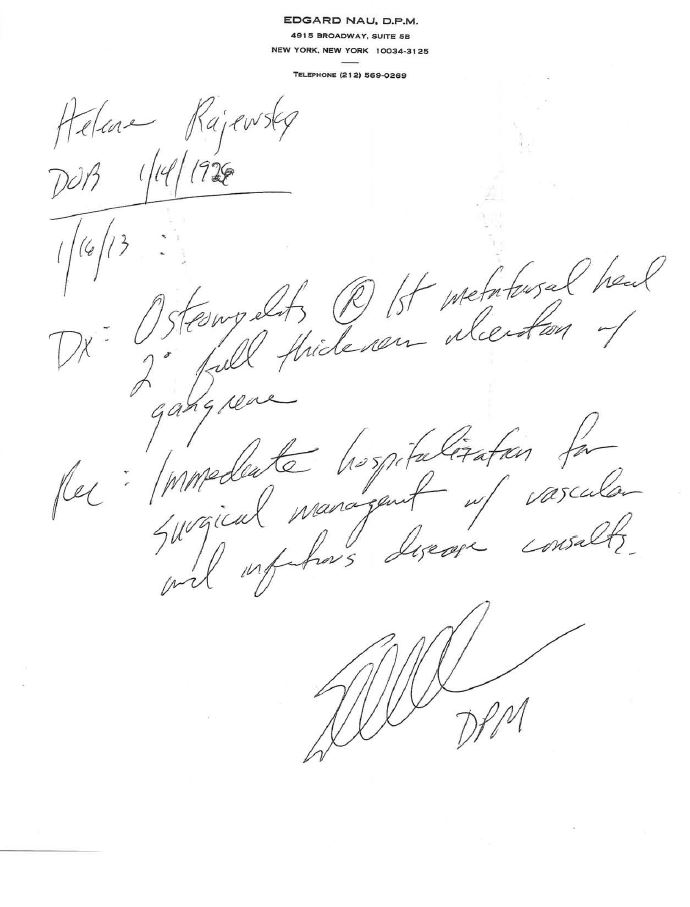 EDGARD NAU, D.P.M.
4915 BROADWAY, SUITE 5B
NEW YORK, NEW YORK 10034-3125
TELEPHONE (212) 569-0269
Helene Rajewsky
DOB 1/14/1926
1/16/13 :
Dx: Osteomyelits Ⓡ 1st metatarsal head
2° full thickness ulceration w/
gangrene
Rec: Immediate hospitalization for
surgical managent w/ vascular
and infectious disease consults.
DPM